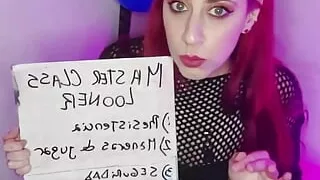 MASTER CLASS
LOONER
1) Resistencia
2) Maneras de jugar
3) SEGURIDAD